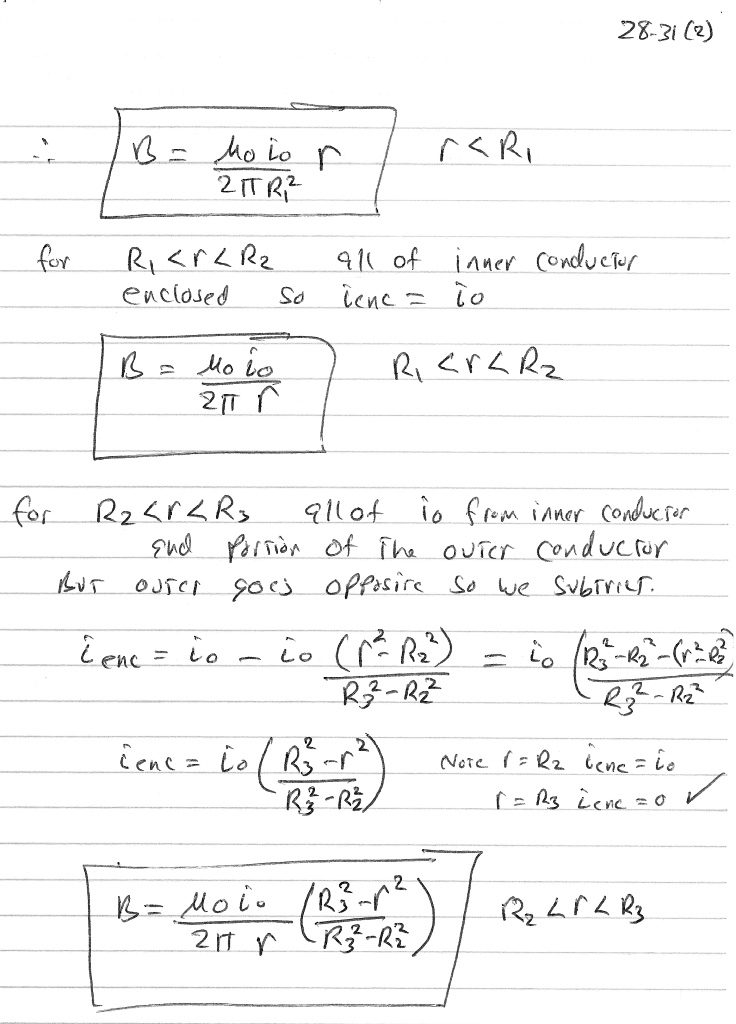 28-31 (2)
∴ B = μ₀ i₀ / 2πR₁² r r < R₁
for R₁ < r < R₂ all of inner conductor
enclosed so ienc = i₀
B = μ₀ i₀ / 2π r R₁ < r < R₂
for R₂ < r < R₃ all of i₀ from inner conductor
and portion of the outer conductor
But outer goes opposite so we subtract.
ienc = i₀ - i₀ (r² - R₂²) / R₃² - R₂² = i₀ (R₃² - R₂² - (r² - R₂²) / R₃² - R₂²
ienc = i₀ (R₃² - r² / R₃² - R₂²) Note r = R₂ ienc = i₀
r = R₃ ienc = 0 ✓
B = μ₀ i₀ / 2π r (R₃² - r² / R₃² - R₂²) R₂ < r < R₃